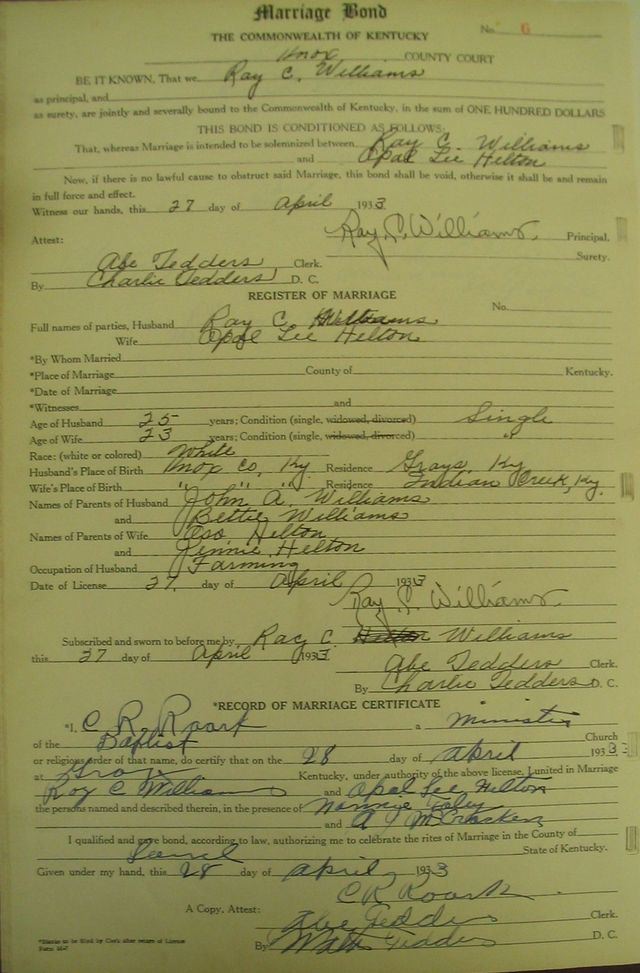 Marriage Bond
No. 6
THE COMMONWEALTH OF KENTUCKY
Knox COUNTY COURT
BE IT KNOWN, That we Ray C. Williams
as principal, and
as surety, are jointly and severally bound to the Commonwealth of Kentucky, in the sum of ONE HUNDRED DOLLARS
THIS BOND IS CONDITIONED AS FOLLOWS:
That, whereas Marriage is intended to be solemnized between Ray C. Williams
and Opal Lee Helton
Now, if there is no lawful cause to obstruct said Marriage, this bond shall be void, otherwise it shall be and remain
in full force and effect.
Witness our hands, this 27 day of April 1933
Ray C. Williams. Principal.
Attest: Surety.
Abe Tedders Clerk.
By Charlie Tedders D. C.
REGISTER OF MARRIAGE
No.
Full names of parties, Husband Ray C. Williams
Wife Opal Lee Helton
*By Whom Married
*Place of Marriage County of Kentucky.
*Date of Marriage
*Witnesses and
Age of Husband 25 years; Condition (single, widowed, divorced) Single
Age of Wife 23 years; Condition (single, widowed, divorced) "
Race: (white or colored) White
Husband's Place of Birth Knox Co, Ky. Residence Grays, Ky
Wife's Place of Birth " " " Residence Indian Creek, Ky.
Names of Parents of Husband John A. Williams
and Bettie Williams
Names of Parents of Wife Aso Helton
and Jennie Helton
Occupation of Husband Farming
Date of License 27. day of April 1933
Ray C. Williams.
Subscribed and sworn to before me by Ray C. Williams
this 27 day of April 1933
Abe Tedders Clerk.
By Charlie Tedders D. C.
*RECORD OF MARRIAGE CERTIFICATE
*I, C R Roark a Minister
of the Baptist Church
or religious order of that name, do certify that on the 28 day of April 1933
at Gray Kentucky, under authority of the above license, I united in Marriage
Roy C Williams and Opal Lee Helton
the persons named and described therein, in the presence of Nannie Foley
and A J McCracken
I qualified and gave bond, according to law, authorizing me to celebrate the rites of Marriage in the County of
Laurel State of Kentucky.
Given under my hand, this 28 day of April 1933
C R Roark
A Copy, Attest: Abe Tedders Clerk.
By Tedders D. C.
*Blanks to be filled by Clerk after return of License